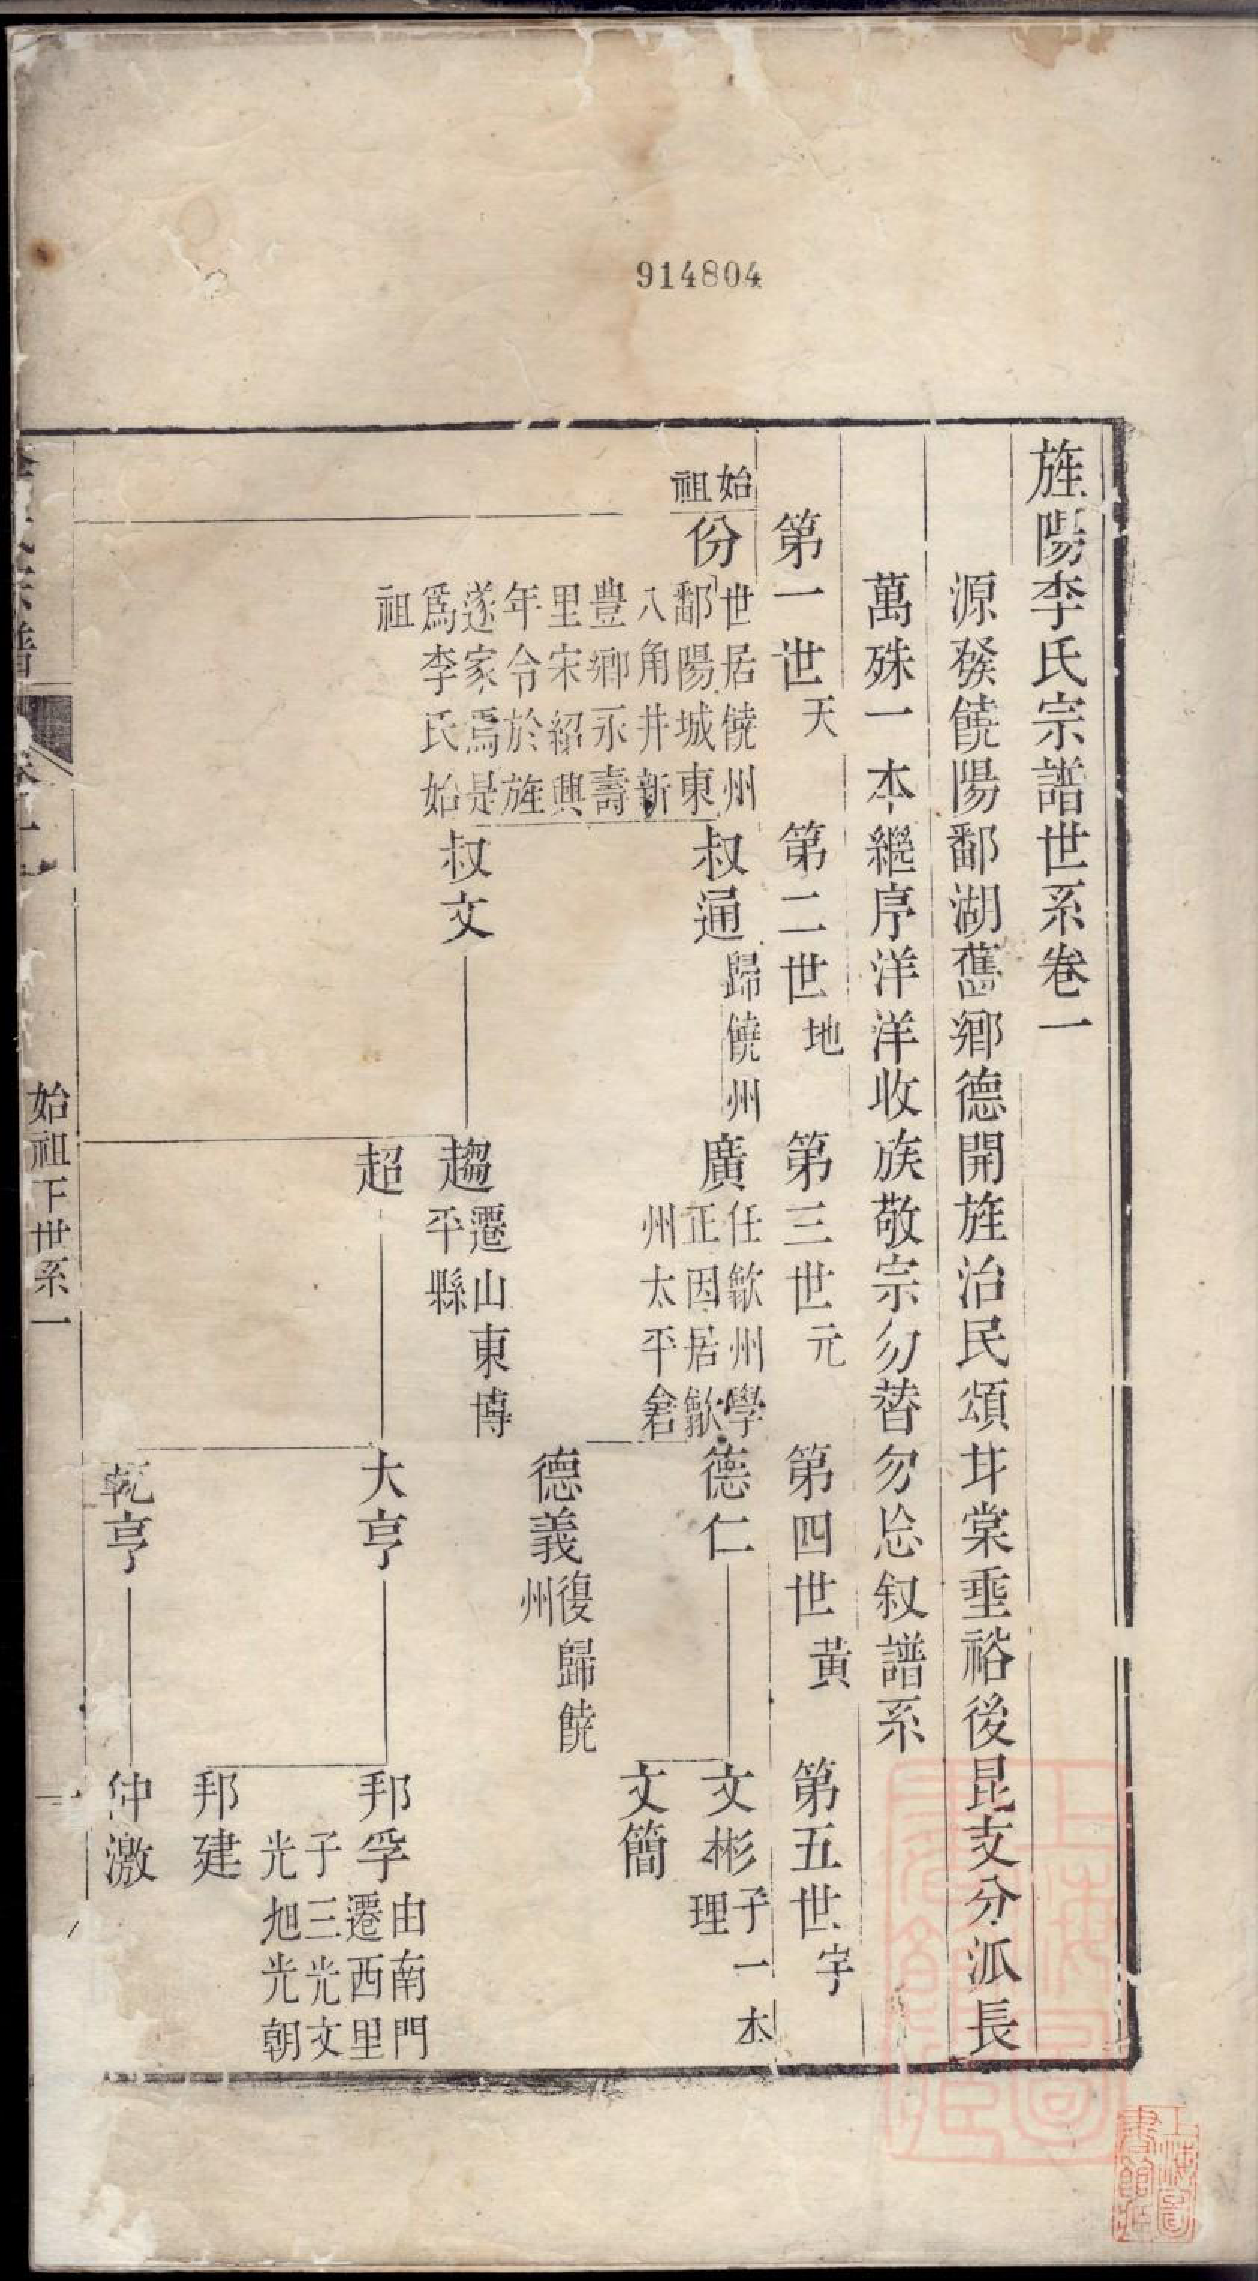 914804
旌陽李氏宗譜世系卷一
源發饒陽鄱湖舊鄉德開旌治民頌甘棠垂裕後昆支分派長
萬殊一本繼序洋洋收族敬宗勿替勿忘叙譜系
第一世天
第二世地
第三世元
第四世黃
第五世宇
始
祖
份
世居饒州
鄱陽城東
八角井新
豐鄉永壽
里宋紹興
年令於旌
遂家焉是
爲李氏始
祖
叔通
歸饒州
廣
任歙州學
正因居歙
州太平舍
德仁
文彬
子一本
理
文簡
德義
復歸饒
州
叔文
趨
遷山東博
平縣
超
大亨
邦孚
由南門
遷西里
子三光文
光旭光朝
邦建
乾亨
仲激
始祖下世系一
上海圖
書館藏